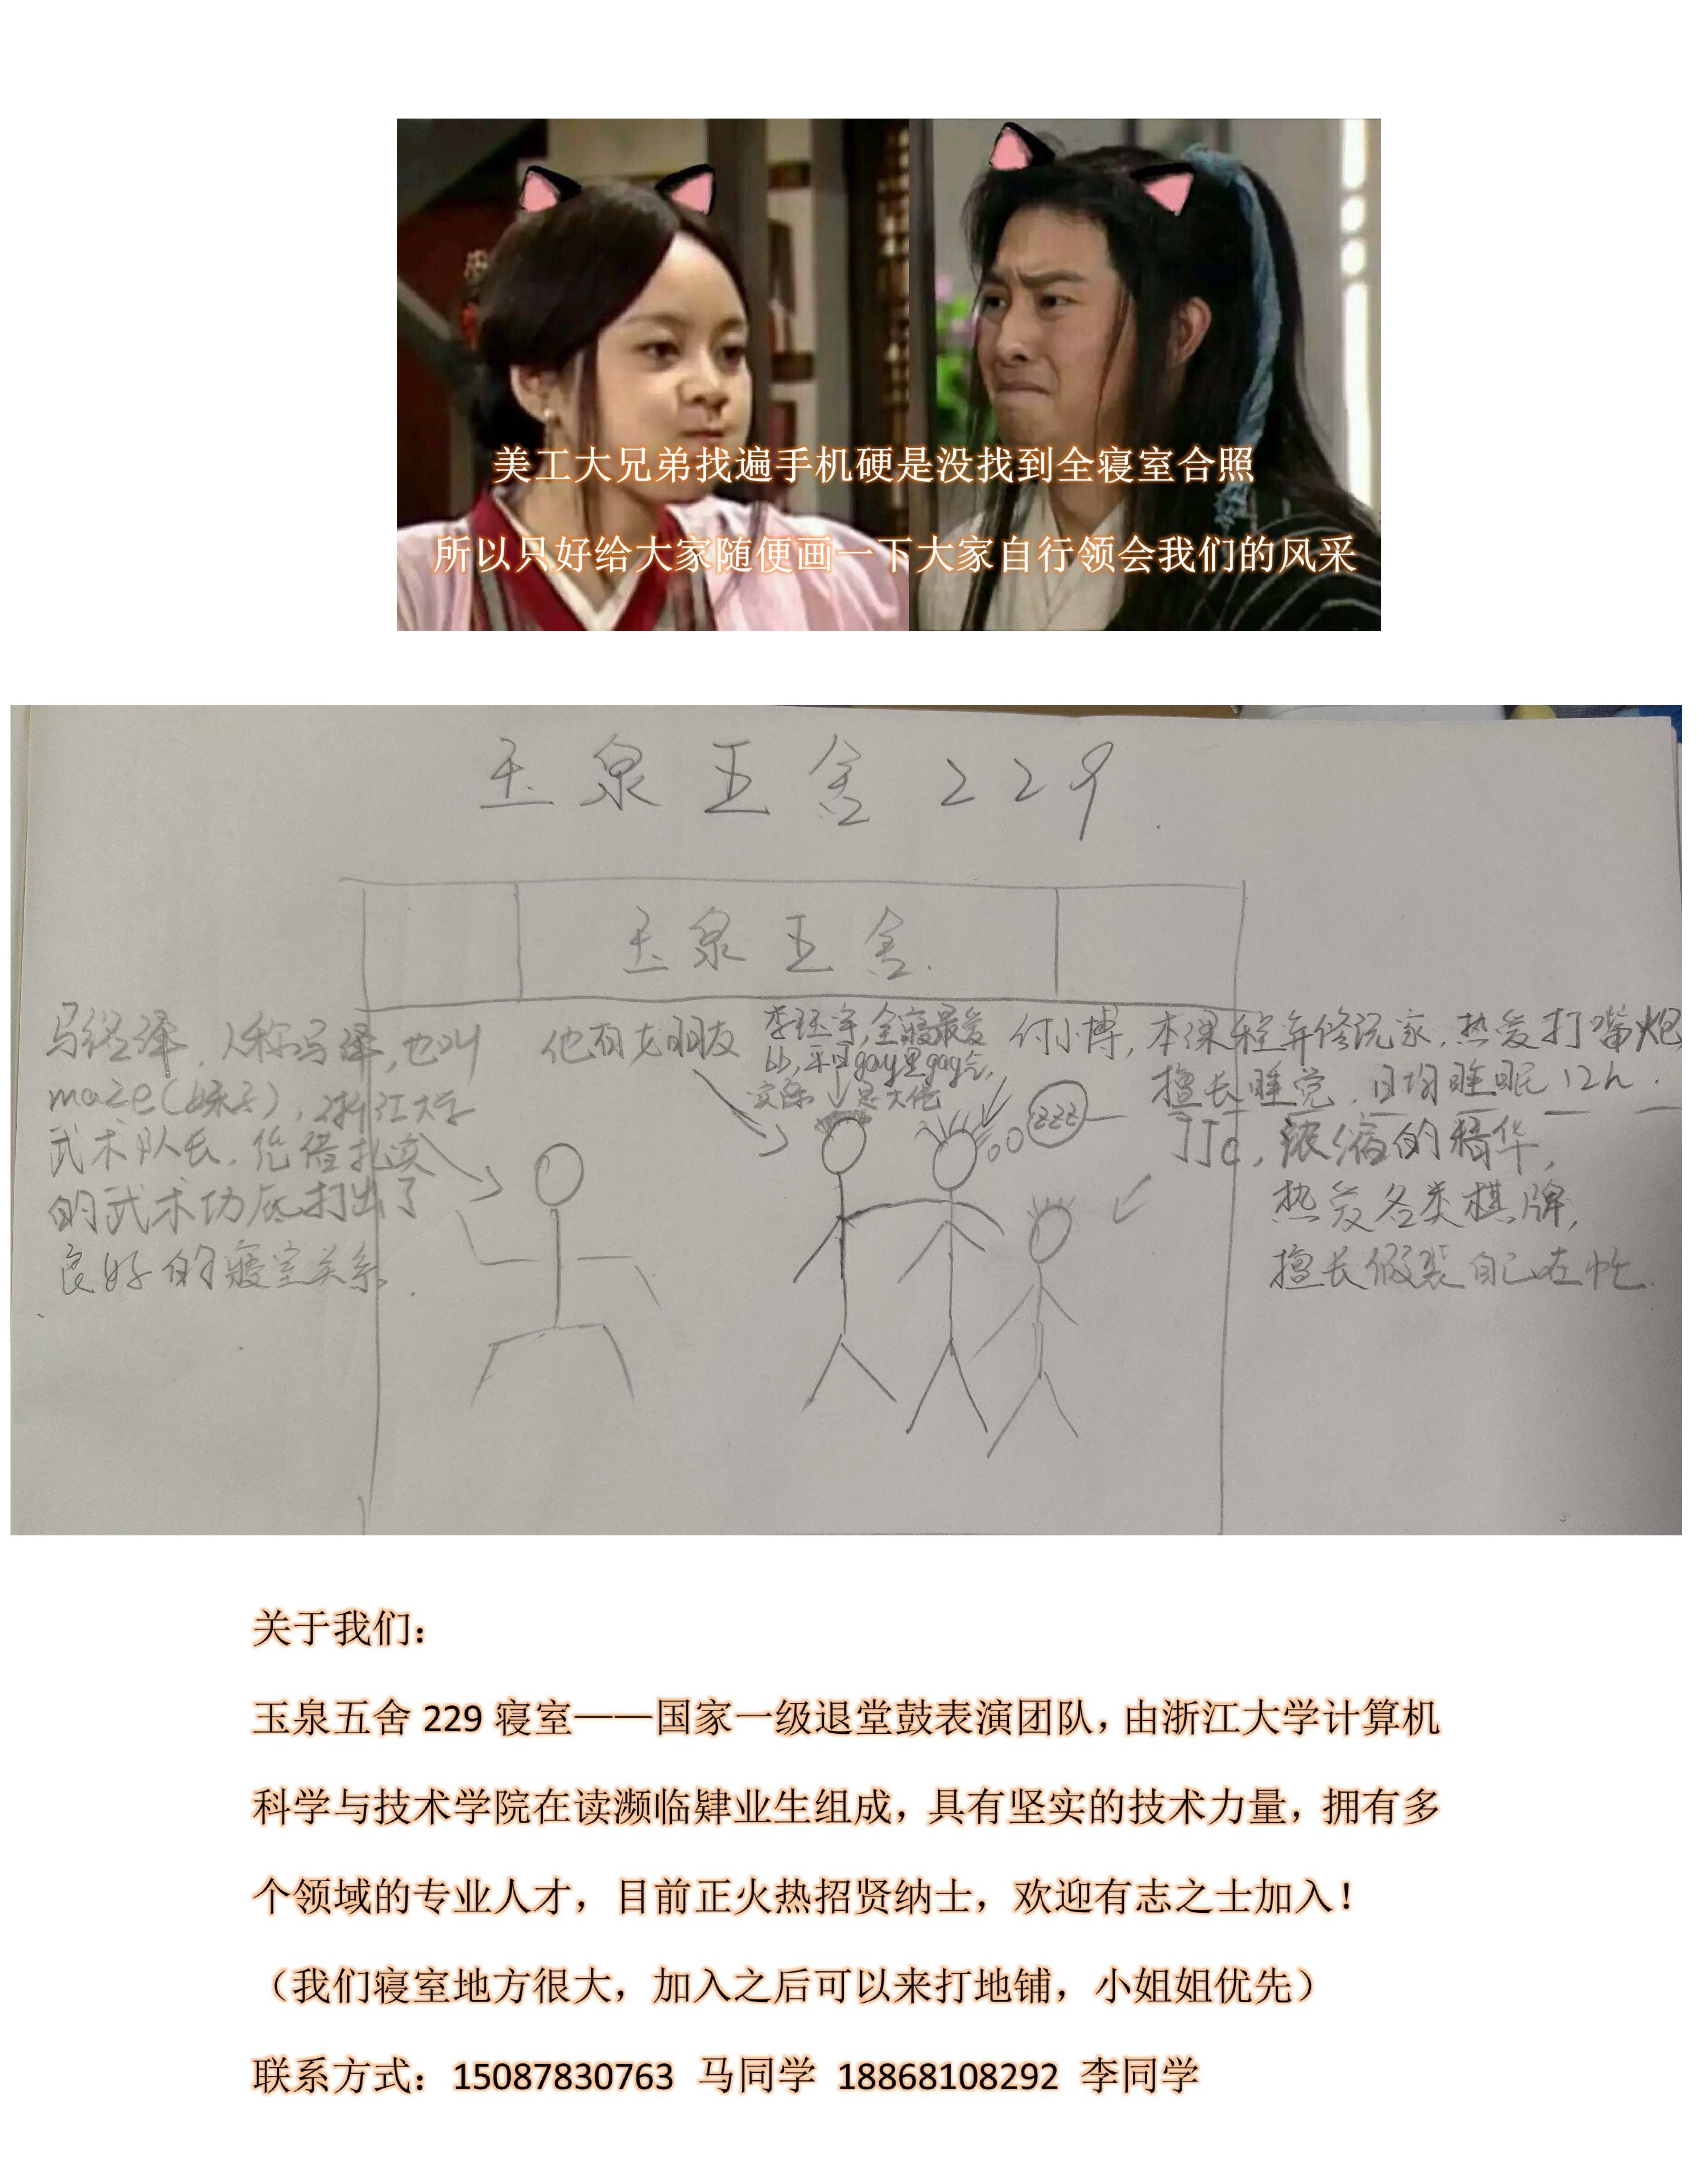 美工大兄弟找遍手机硬是没找到全寝室合照
所以只好给大家随便画一下大家自行领会我们的风采
玉泉五舍229
玉泉五舍
马经泽,人称马泽,也叫
maze(妹子),浙江大学
武术队长,凭借扎实
的武术功底打出了
良好的寝室关系.
他有女朋友
李 ,全寝最爱
bb,平日gay里gay气,
实际是大佬
付小博,本课程弃修玩家,热爱打嘴炮
擅长睡觉,日均睡眠12h.
zzz
JJC,浓缩的精华,
热爱各类棋牌,
擅长假装自己在忙.
关于我们:
玉泉五舍 229 寝室——国家一级退堂鼓表演团队,由浙江大学计算机
科学与技术学院在读濒临肄业生组成,具有坚实的技术力量,拥有多
个领域的专业人才,目前正火热招贤纳士,欢迎有志之士加入!
(我们寝室地方很大,加入之后可以来打地铺,小姐姐优先)
联系方式:15087830763 马同学 18868108292 李同学